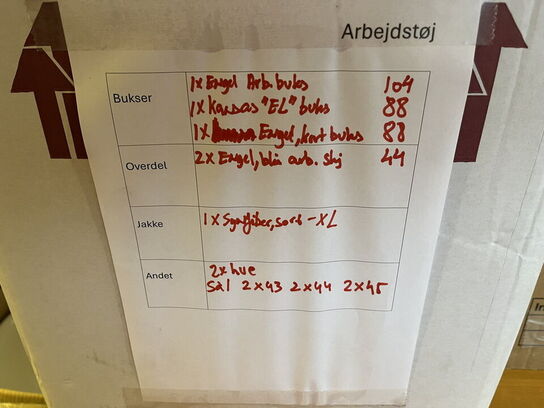 Arbejdstøj
Bukser
1x Engel Arb.buks 104
1x Kansas "EL" buks 88
1x Engel, kort buks 88
Overdel
2x Engel, blå arb. skj 44
Jakke
1x Synfiber, sort - XL
Andet
2x hue
Sål 2x43 2x44 2x45